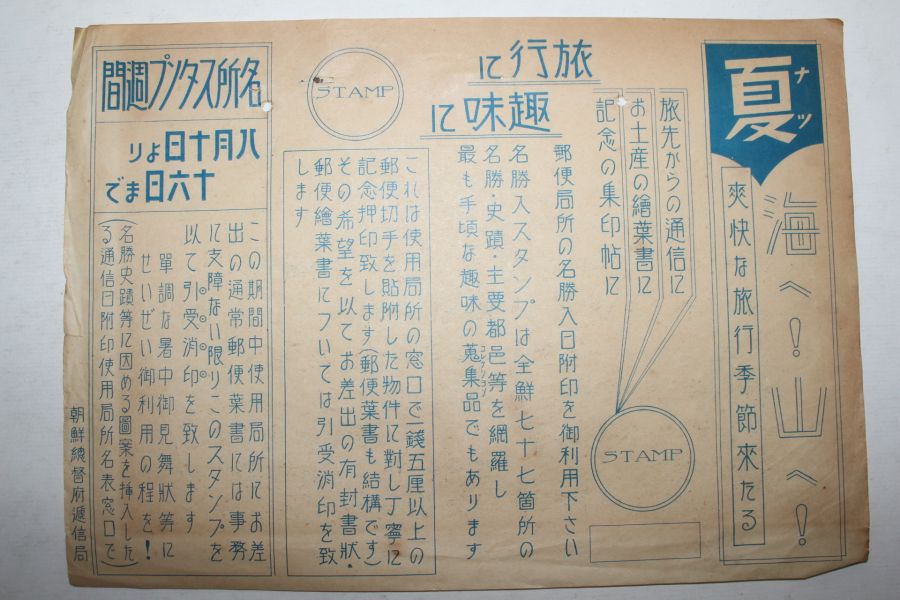 夏
ナツ
海へ！山へ！
爽快な旅行季節來たる
旅行に
趣味に
旅先からの通信に
お土産の繪葉書に
記念の集印帖に
STAMP
郵便局所の名勝入日附印を御利用下さい
名勝入スタンプは全鮮七十七箇所の
名勝・史蹟・主要都邑等を網羅し
最も手頃な趣味の蒐集品でもあります
コレクション
STAMP
これは使用局所の窓口で一錢五厘以上の
郵便切手を貼附した物件に對し丁寧に
記念押印致します(郵便葉書も結構です)
その希望を以てお差出の有封書狀・
郵便繪葉書については引受消印を致
します
名所スタンプ週間
八月十日より
十六日まで
この期間中使用局所にお差
出の通常郵便葉書には事務
に支障ない限りこのスタンプを
以て引受消印を致します
單調な暑中御見舞狀等に
せいぜい御利用の程を！
(名勝史蹟等に因める圖案を挿入した
る通信日附印使用局所名表窓口で)
朝鮮總督府遞信局